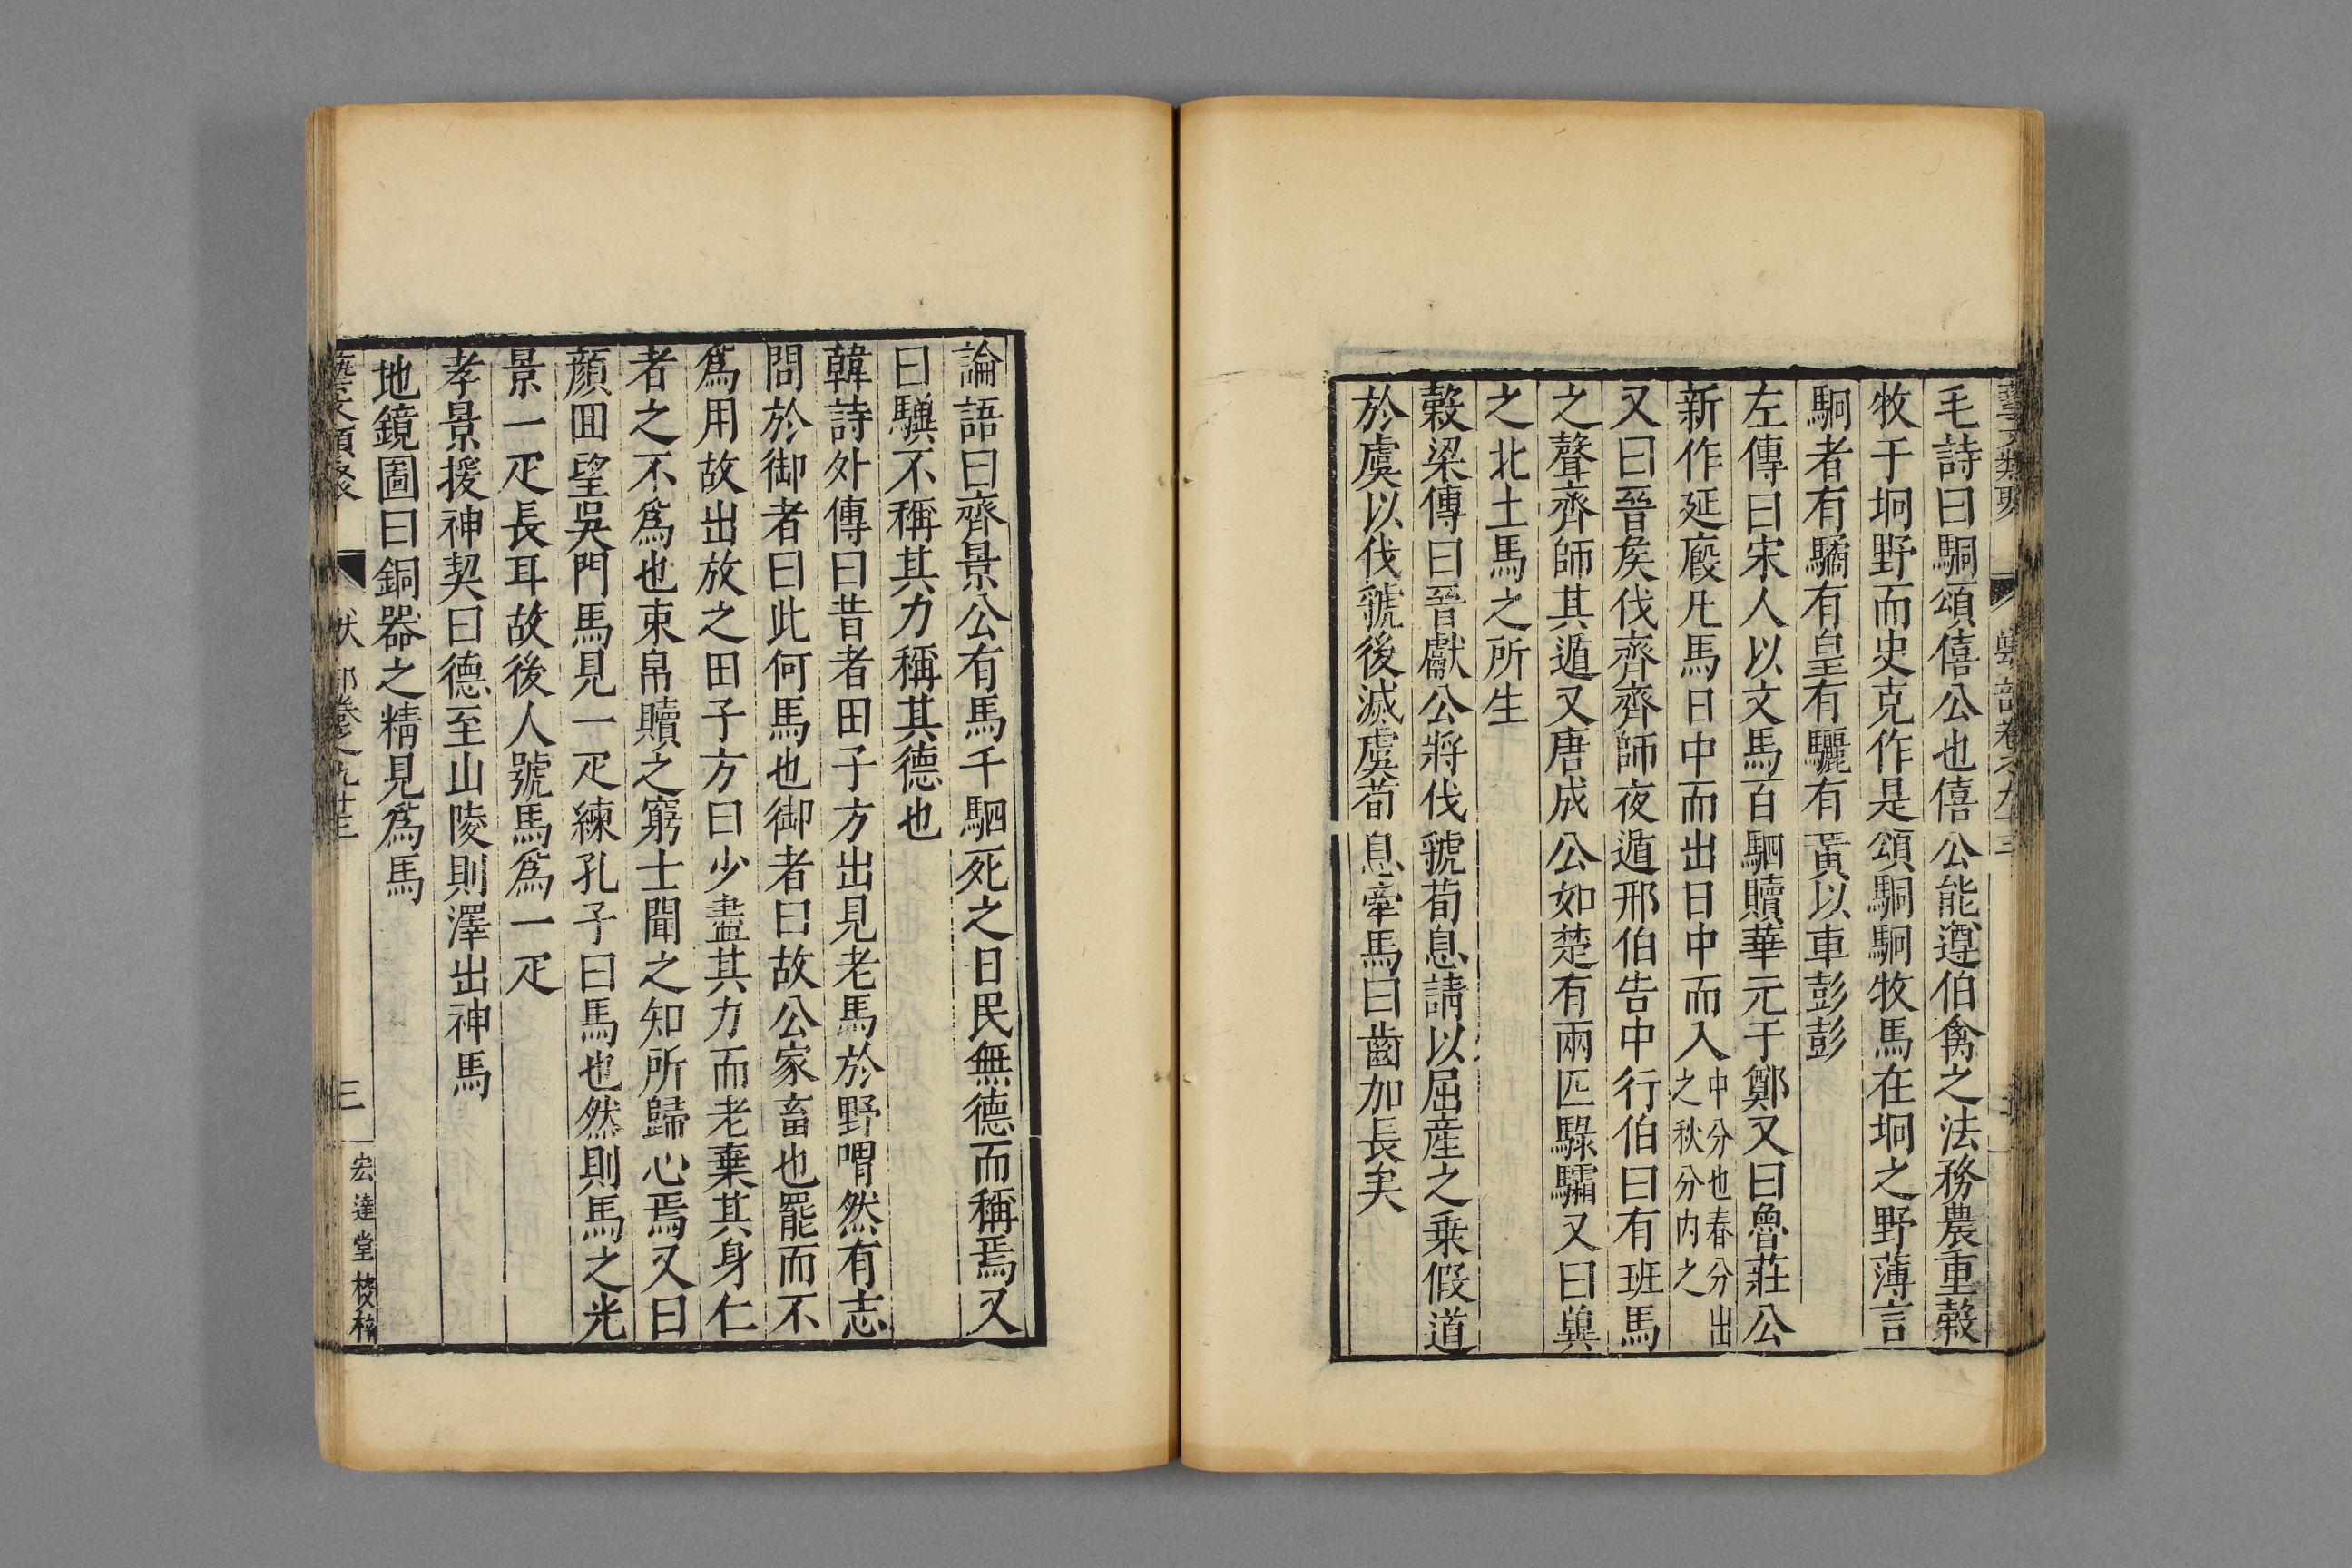 毛詩曰駉頌僖公也僖公能遵伯禽之法務農重穀
牧于坰野而史克作是頌駉駉牧馬在坰之野薄言
駉者有驈有皇有驪有黃以車彭彭
左傳曰宋人以文馬百駟贖華元于鄭又曰魯莊公
新作延廄凡馬日中而出日中而入中分也春分出之秋分内之
又曰晉矦伐齊齊師夜遁邢伯告中行伯曰有班馬
之聲齊師其遁又唐成公如楚有兩匹騄驌又曰冀
之北土馬之所生
穀梁傳曰晉獻公將伐虢荀息請以屈産之乗假道
於虞以伐虢後滅虞荀息牽馬曰齒加長矣
論語曰齊景公有馬千駟死之日民無德而稱焉又
曰驥不稱其力稱其德也
韓詩外傳曰昔者田子方出見老馬於野喟然有志
問於御者曰此何馬也御者曰故公家畜也罷而不
爲用故出放之田子方曰少盡其力而老棄其身仁
者之不爲也束帛贖之窮士聞之知所歸心焉又曰
顔囬望吳門馬見一疋練孔子曰馬也然則馬之光
景一疋長耳故後人號馬爲一疋
孝景援神契曰德至山陵則澤出神馬
地鏡圖曰銅器之精見爲馬
三
宏達堂校梓